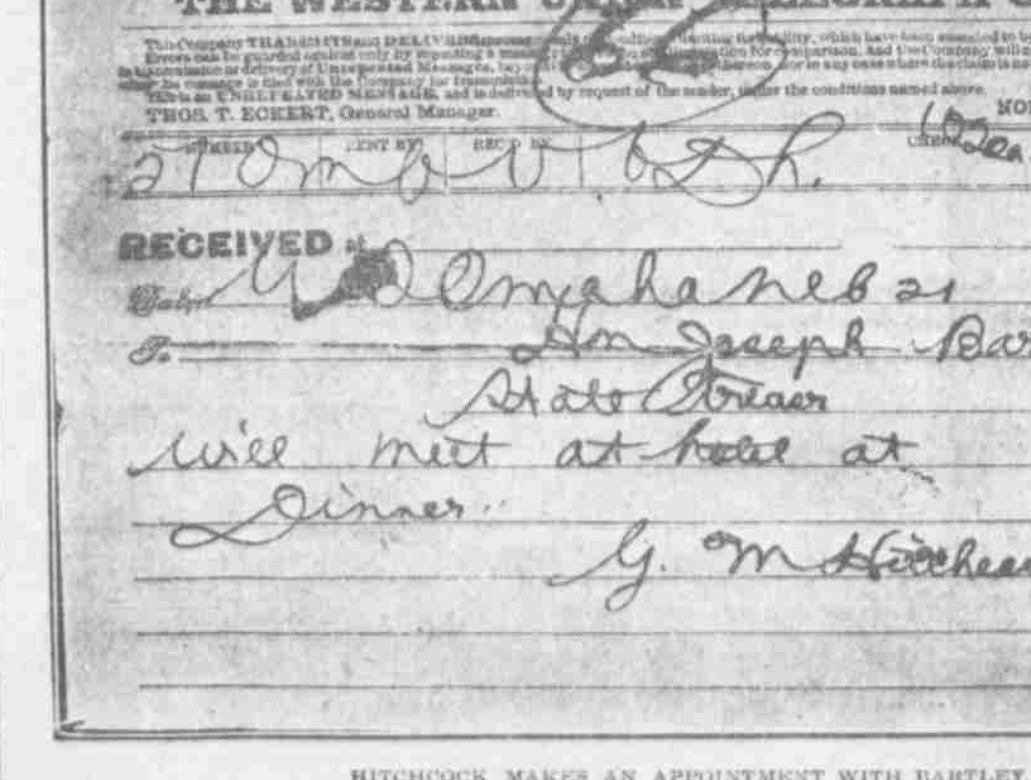 THE WESTERN UNION TELEGRAPH
This Company TRANSMITS and DELIVERS messages only on conditions limiting its liability, which have been assented to
Errors can be guarded against only by repeating a message for comparison, and the Company will
in transmission or delivery of Unrepeated Messages, or in any case where the claim is
the message is filed with the Company for transmission
This is an UNREPEATED MESSAGE, and is delivered by request of the sender, under the conditions named above.
THOS. T. ECKERT, General Manager.
NUMBER SENT BY REC'D BY CHECK
RECEIVED at
Omaha Neb 21
To Hon Joseph Bar
State Treasr
will meet at hotel at
Dinner
G. M Hitchcoc
HITCHCOCK MAKES AN APPOINTMENT WITH BARTLEY